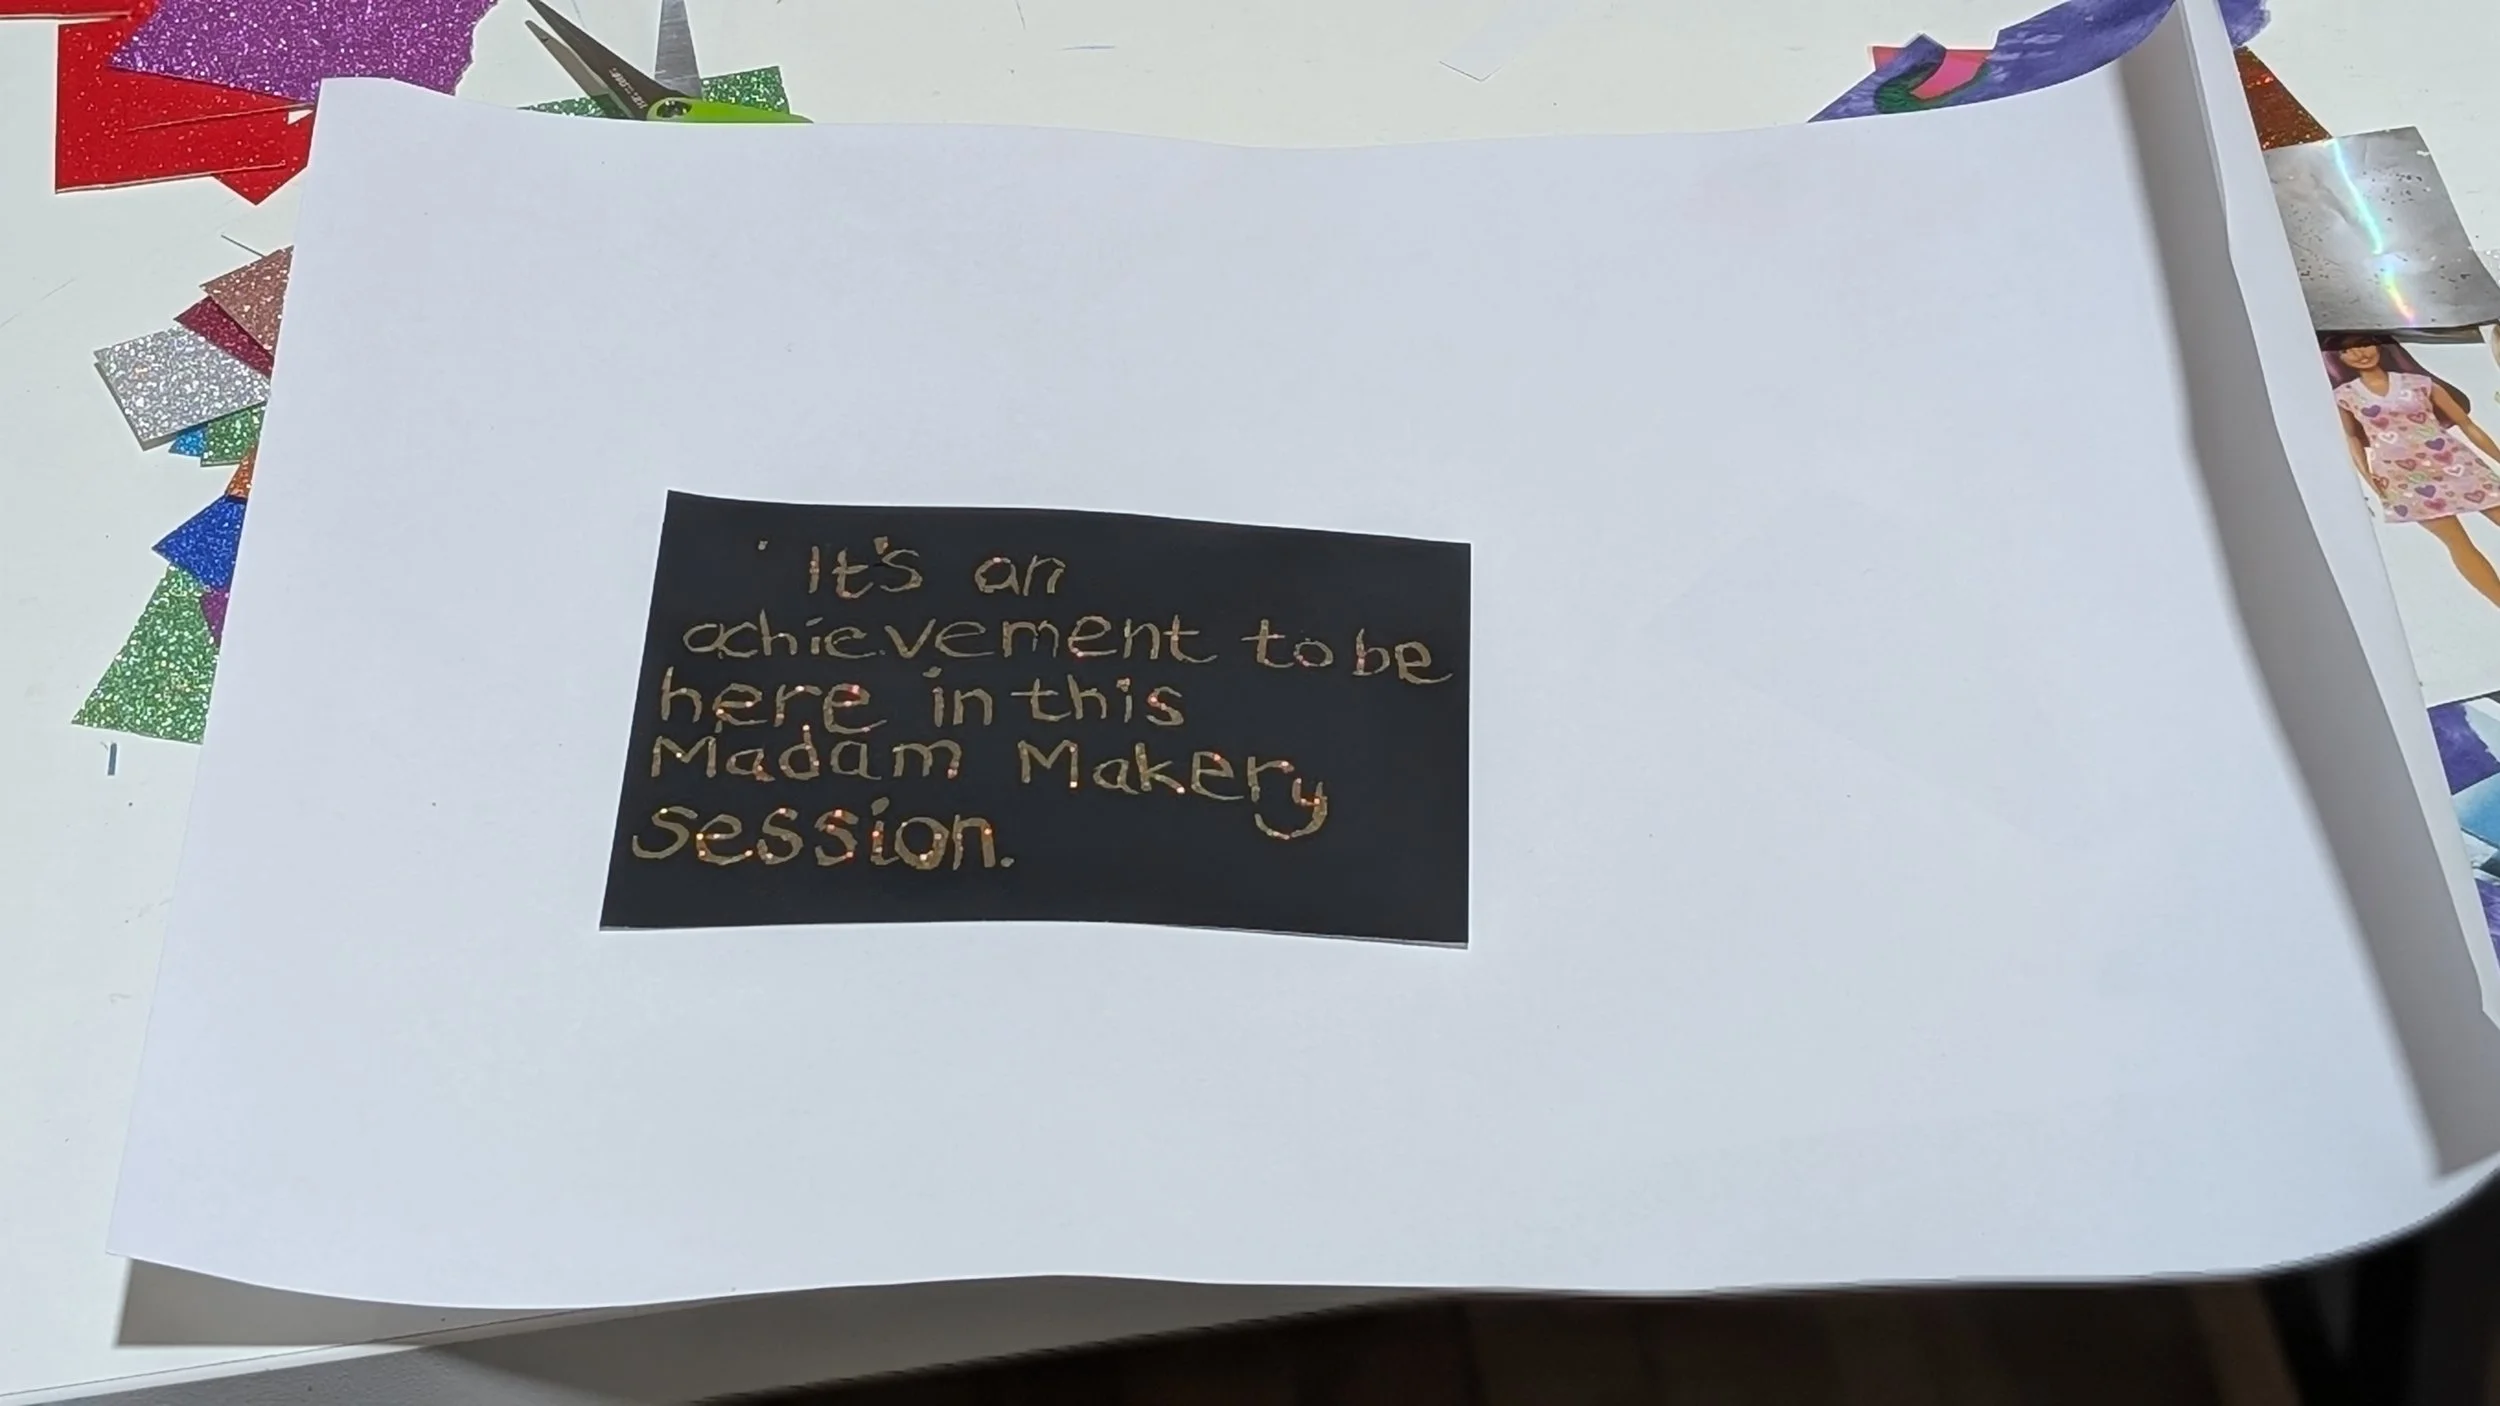 It's an
achievement to be
here in this
Madam Makery
session.